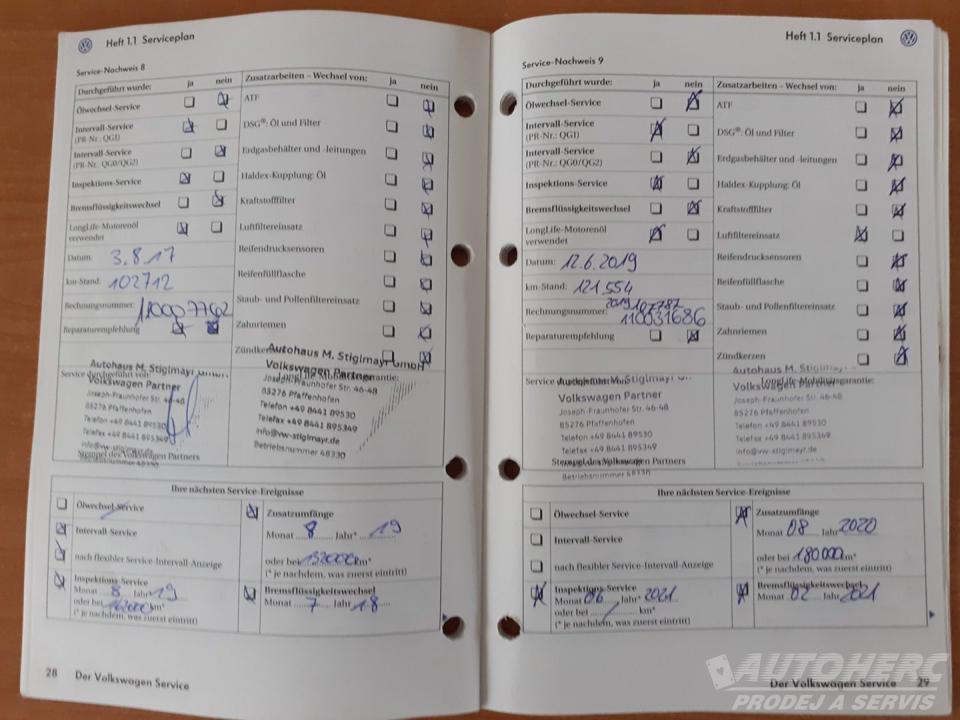 Heft 1.1 Serviceplan
Service-Nachweis 8
Durchgeführt wurde: ja nein
Ölwechsel-Service
Intervall-Service
(PR-Nr.: QGI)
Intervall-Service
(PR-Nr.: QG0/QG2)
Inspektions-Service
Bremsflüssigkeitswechsel
LongLife-Motorenöl
verwendet
Datum: 3.8.17
km-Stand: 102712
Rechnungsnummer:
Reparaturempfehlung
Zusatzarbeiten – Wechsel von: ja nein
ATF
DSG®: Öl und Filter
Erdgasbehälter und -leitungen
Haldex-Kupplung: Öl
Kraftstofffilter
Luftfiltereinsatz
Reifendrucksensoren
Reifenfüllflasche
Staub- und Pollenfiltereinsatz
Zahnriemen
Zündkerzen
Service durchgeführt von:
Autohaus M. Stiglmayr GmbH
Volkswagen Partner
Joseph-Fraunhofer Str. 46-48
85276 Pfaffenhofen
Telefon +49 8441 89530
Telefax +49 8441 895349
info@vw-stiglmayr.de
Stempel des Volkswagen Partners
Autohaus M. Stiglmayr GmbH
Volkswagen Partner
LongLife-Mobilitätsgarantie:
Joseph-Fraunhofer Str. 46-48
85276 Pfaffenhofen
Telefon +49 8441 89530
Telefax +49 8441 895349
info@vw-stiglmayr.de
Betriebsnummer 48330
Ihre nächsten Service-Ereignisse
Ölwechsel-Service
Intervall-Service
nach flexibler Service-Intervall-Anzeige
Inspektions-Service
Monat 8 Jahr* 19
oder bei km*
(* je nachdem, was zuerst eintritt)
Zusatzumfänge
Monat 8 Jahr* 19
oder bei 132000 km*
(* je nachdem, was zuerst eintritt)
Bremsflüssigkeitswechsel
Monat 7 Jahr 18
28 Der Volkswagen Service
Heft 1.1 Serviceplan
Service-Nachweis 9
Durchgeführt wurde: ja nein
Ölwechsel-Service
Intervall-Service
(PR-Nr.: QGI)
Intervall-Service
(PR-Nr.: QG0/QG2)
Inspektions-Service
Bremsflüssigkeitswechsel
LongLife-Motorenöl
verwendet
Datum: 12.6.2019
km-Stand: 121554
Rechnungsnummer: 110031686
Reparaturempfehlung
Zusatzarbeiten – Wechsel von: ja nein
ATF
DSG®: Öl und Filter
Erdgasbehälter und -leitungen
Haldex-Kupplung: Öl
Kraftstofffilter
Luftfiltereinsatz
Reifendrucksensoren
Reifenfüllflasche
Staub- und Pollenfiltereinsatz
Zahnriemen
Zündkerzen
Service durchgeführt von:
Volkswagen Partner
Joseph-Fraunhofer Str. 46-48
85276 Pfaffenhofen
Telefon +49 8441 89530
Telefax +49 8441 895349
Stempel des Volkswagen Partners
Betriebsnummer 48330
Autohaus M. Stiglmayr
LongLife-Mobilitätsgarantie:
Volkswagen Partner
Joseph-Fraunhofer Str. 46-48
85276 Pfaffenhofen
Telefon +49 8441 89530
Telefax +49 8441 895349
info@vw-stiglmayr.de
Ihre nächsten Service-Ereignisse
Ölwechsel-Service
Intervall-Service
nach flexibler Service-Intervall-Anzeige
Inspektions-Service
Monat 06 Jahr* 2021
oder bei km*
(* je nachdem, was zuerst eintritt)
Zusatzumfänge
Monat 08 Jahr 2020
oder bei 180000 km*
(* je nachdem, was zuerst eintritt)
Bremsflüssigkeitswechsel
Monat 02 Jahr 2021
Der Volkswagen Service 29
AUTOHERC
PRODEJ A SERVIS